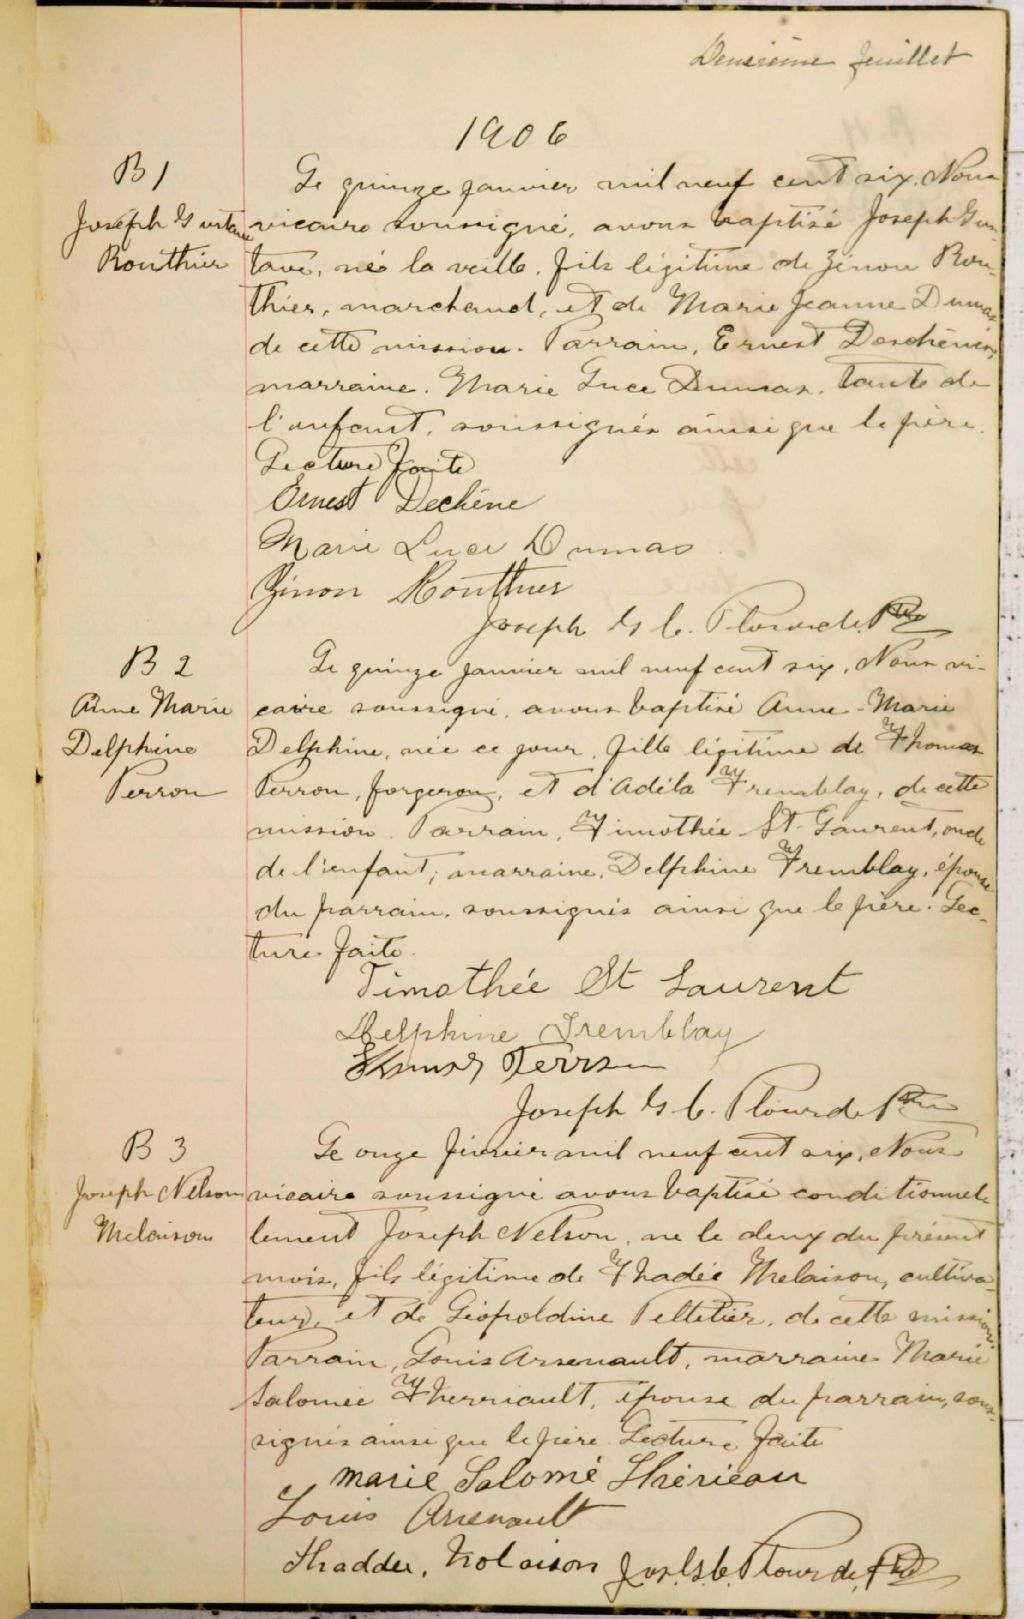 Deuxième feuillet
1906
B 1
Joseph Gustave
Routhier
Le quinze janvier mil neuf cent six, Nous
vicaire soussigné, avons baptisé Joseph Gus-
tave, né la veille, fils légitime de Zénon Rou-
thier, marchand, et de Marie Jeanne Dumas
de cette mission. Parrain, Ernest Deschênes,
marraine, Marie Luce Dumas, tante de
l'enfant, soussignés ainsi que le père.
Lecture faite
Ernest Dechêne
Marie Luce Dumas
Zénon Routhier
Joseph G. C. Plourde Ptre
B 2
Anne Marie
Delphine
Perron
Le quinze janvier mil neuf cent six, Nous vi-
caire soussigné, avons baptisé Anne-Marie
Delphine, née ce jour, fille légitime de Thomas
Perron, forgeron, et d'Adéla Tremblay, de cette
mission. Parrain, Timothée St-Laurent, oncle
de l'enfant; marraine, Delphine Tremblay, épouse
du parrain, soussignés ainsi que le père. Lec-
ture faite.
Timothée St Laurent
Delphine Tremblay
Thomas Perron
Joseph G. C. Plourde Ptre
B 3
Joseph Nelson
Melaison
Le onze février mil neuf cent six, Nous
vicaire soussigné avons baptisé conditionnel-
lement Joseph Nelson, né le deux du présent
mois, fils légitime de Thadée Melaison, cultiva-
teur, et de Léopoldine Pelletier, de cette mission.
Parrain, Louis Arsenault, marraine Marie
Salomée Therriault, épouse du parrain, sous-
signés ainsi que le père. Lecture faite
Marie Salomé Thérieau
Louis Arsenault
Thaddée, Molaison
Jos. G. C. Plourde, Ptre